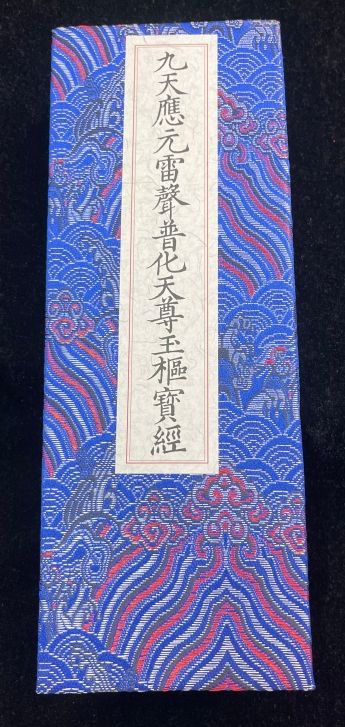 九天應元雷聲普化天尊玉樞寶經